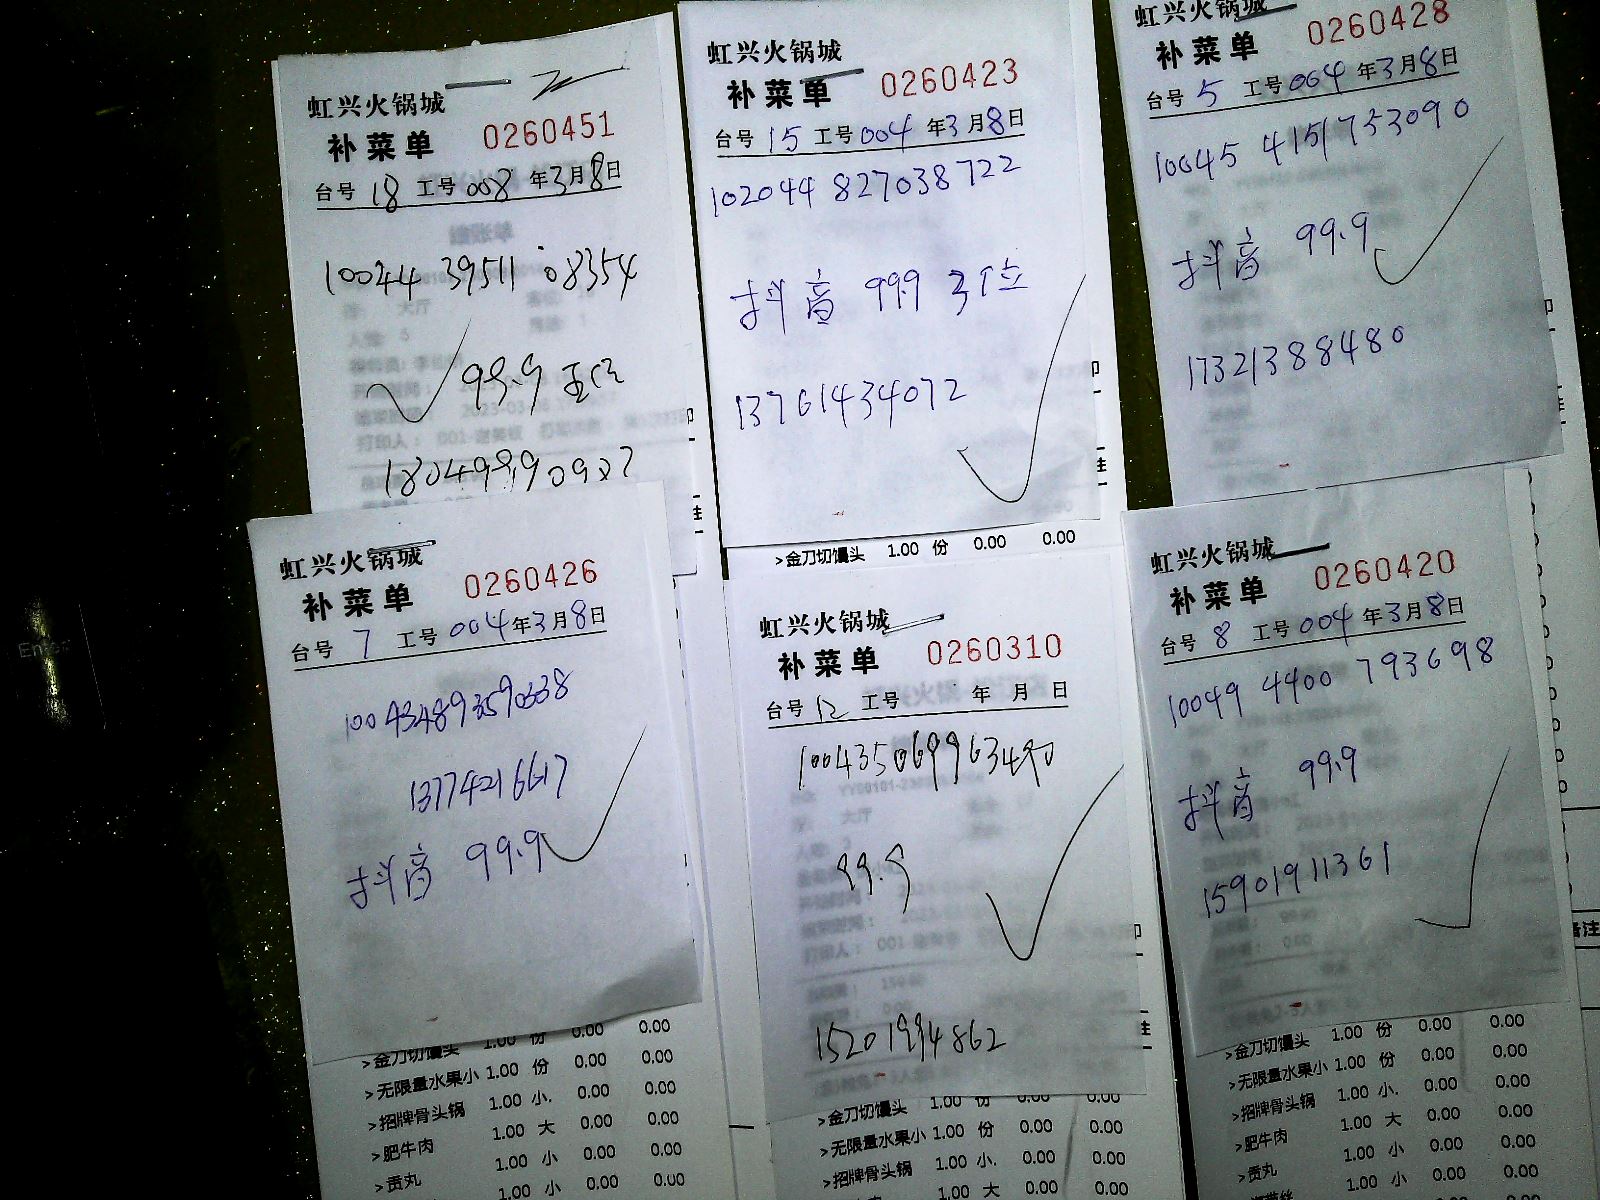 虹兴火锅城
补菜单 0260451
台号 18 工号 008 年3月8日
10044 39511 08354
99.9
虹兴火锅城
补菜单 0260423
台号 15 工号 004 年3月8日
102044 827038722
抖音 99.9 3个位
13761434072
>金刀切馒头 1.00 份 0.00 0.00
虹兴火锅城
补菜单 0260428
台号 5 工号 004 年3月8日
10045 4151753090
抖音 99.9
17321388480
虹兴火锅城
补菜单 0260426
台号 7 工号 004 年3月8日
13774216617
抖音 99.9
>金刀切馒头 1.00 份 0.00 0.00
>无限量水果小 1.00 份 0.00 0.00
>招牌骨头锅 1.00 小. 0.00 0.00
>肥牛肉 1.00 大 0.00 0.00
>贡丸 1.00 小 0.00 0.00
1.00 小 0.00 0.00
虹兴火锅城
补菜单 0260310
台号 12 工号 年 月 日
99.9
15201994862
>金刀切馒头 1.00 份 0.00 0.00
>无限量水果小 1.00 份 0.00 0.00
>招牌骨头锅 1.00 小. 0.00 0.00
1.00 大 0.00 0.00
虹兴火锅城
补菜单 0260420
台号 8 工号 004 年3月8日
10049 4400 793698
抖音 99.9
15901911361
备注
>金刀切馒头 1.00 份 0.00 0.00
>无限量水果小 1.00 份 0.00 0.00
>招牌骨头锅 1.00 小. 0.00 0.00
>肥牛肉 1.00 大 0.00 0.00
>贡丸 1.00 小 0.00 0.00
1.00 小 0.00 0.00
Enter